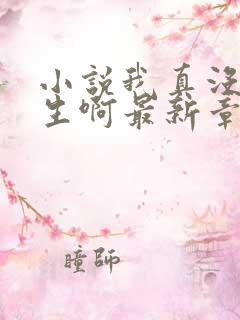 小説我真没
生啊最新章
瞳師